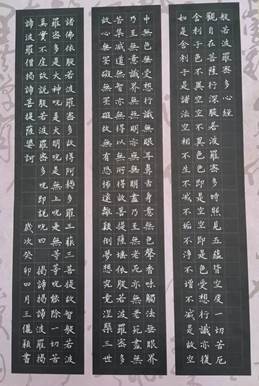 般若波羅蜜多心經
觀自在菩薩行深般若波羅蜜多時照見五蘊皆空度一切苦厄
舍利子色不異空空不異色色即是空空即是色受想行識亦復
如是舍利子是諸法空相不生不滅不垢不淨不增不減是故空
中無色無受想行識無眼耳鼻舌身意無色聲香味觸法無眼界
乃至無意識界無無明亦無無明盡乃至無老死亦無老死盡無
苦集滅道無智亦無得以無所得故菩提薩埵依般若波羅蜜多
故心無罣礙無罣礙故無有恐怖遠離顛倒夢想究竟涅槃三世
諸佛依般若波羅蜜多故得阿耨多羅三藐三菩提故知般若波
羅蜜多是大神呪是大明呪是無上呪是無等等呪能除一切苦
真實不虛故說般若波羅蜜多呪即說呪曰 揭諦揭諦波羅揭
諦波羅僧揭諦菩提薩婆訶 歲次癸卯四月王儷書